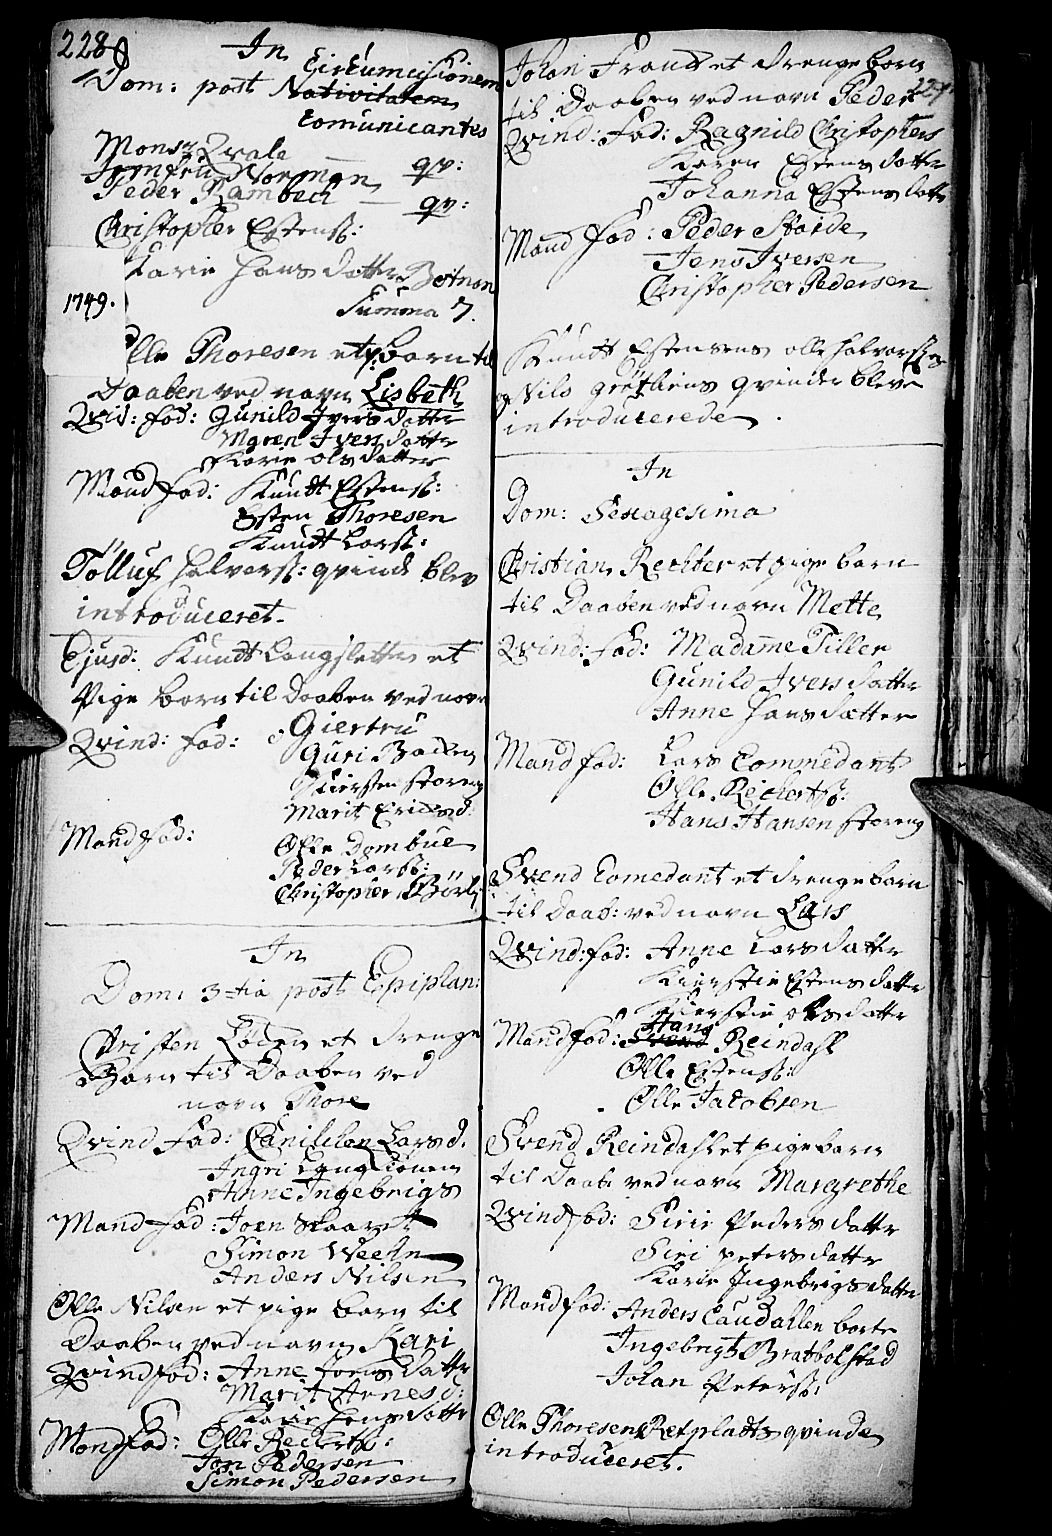 228
In
Circumcisionem
Dom: post Nativitatem
Comunicantes
Monsr Qvale
Jomfru Normon qv:
Peder Rambech — qv:
Christopher Estens:
Karie Hans datter Botnen
1749.
Summa 7.
Olle Thoresen et p. barn til
Daaben ved navn Lisbeth
Qvi: fad: Gunild Ivers datter
Maren Ivers datter
Karie Ols datter
Mand fad: Knudt Estens:
Esten Thoresen
Knudt Lars:
Tölluf Halvors: qvinde blev
introduceret.
Ejusd: Knudt Langslette et
Pige barn til Daaben ved navn
Giertru
Qvind: fad: Guri Backen
Kiersten Storeng
Marit Ericsd:
Mand fad: Olle Dombue
Peder Lars:
Christopher Börli
In
Dom: 3tia post Epiphan:
Christen Löden et drenge
Barn til Daaben ved
navn Thore
Qvind fad: Larsd.
Ingri
Anne Ingebrigs
Mand fad: Joen Skaaret
Simon
Anders Nilsen
Olle Nilsen et pige barn til
Daaben ved navn Kari
Qvind fad: Anne Jons datter
Marit Arnesd:
Karie datter
Mand fad: Olle Reckerts:
Jon Pedersen
Simon Pedersen
Johan Frand et drenge barn
229
til Daaben ved navn Peder
Qvind: fad: Ragnild Christophers
Karen Estens datter
Johanna Estens datter
Mand fad: Peder
Jens Iversen
Christopher Pedersen
Knudt Estensens olle Halvorsens
og Nils Grethens qvinder bleve
introducerede.
In
Dom: Sexagesima
Christian Rechter et pige barn
til Daaben ved navn Mette
Qvind: fad: Madame Tiller
Gunild Ivers datter
Anne Hans datter
Mand fad: Lars Commedant
Olle Reckerts:
Hans Hansen Storeng
Svend Comedant et drenge barn
til Daab: ved navn Lars
Qvind: fad: Anne Lars datter
Kierstie Estens datter
Kierstie Ols datter
Hans
Mand fad: Svend Reindahl
Olle Estens:
Olle Jacobsen
Svend Reindahl et pige barn
til Daabe ved navn Margrethe
Qvind fad: Sirie Peders datter
Siri Peters datter
Karie Ingebrigs datter
Mand fad: Anders
Ingebrigt Bratbolstad
Johan Peters:
Olle Thoresen Retplads qvinde
introduceret.